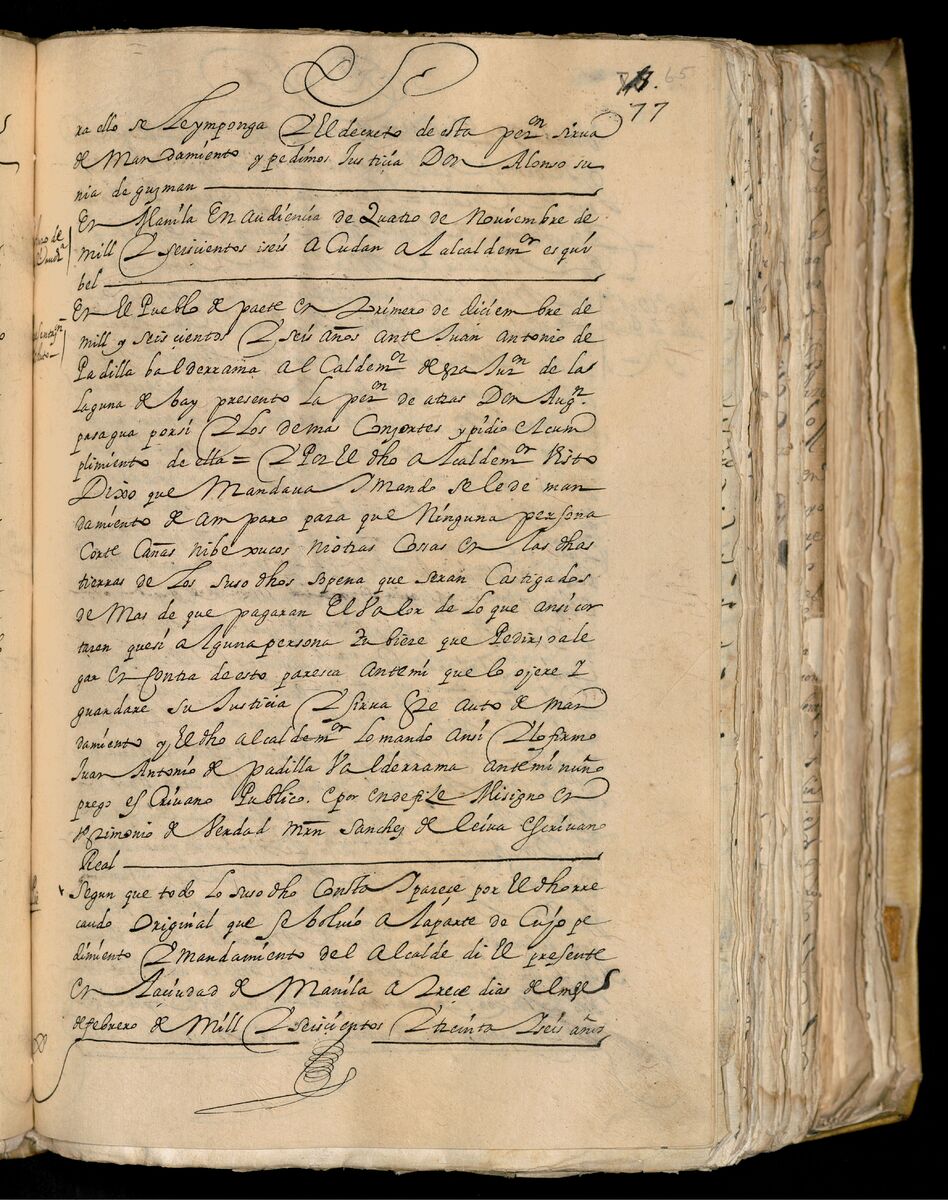 65
77
ra ello se le ymponga y El decreto de esta peron sirua
de Mandamiento y pedimos Justicia Don Alonso su
nia de guzman
En Manila En audiencia de Quatro de Nouiembre de
mill y seiscientos iseis acudan al alcaldemor esqui
bel
En El Pueblo de paete en primero de diciembre de
mill y seiscientos y seis años ante Juan Antonio de
Padilla balderrama alcaldemor desta Juron de las
laguna de bay presento la peron de atras Don Augn
pasagua porsi y los demas Consortes y pidio elcum
plimiento de ella = y Por El dho alcaldemor Visto
Dixo que Mandaua y mando se le de man
damiento de amparo para que Ninguna persona
Corte Cañas nibexucos niotras Cosas en las dhas
tierras de los suso dhos so pena que seran Castigados
de Mas de que pagaran El Valor de lo que ansi cor
taren quesi alguna persona tubiere que Pedir, o ale
gar en contra de esto paresca antemi que lo ojere y
guardare su Justicia y sirua este auto de man
damiento y El dho alcaldemor lo mando ansi y lo firmo
Juan Antonio de padilla Valderrama antemi nuño
prego esCriuano Publico. e por ende fize Misigno en
testimonio de Verdad mrn Sanchez de leiua esCriuano
Real
Segun que todo lo suso dho Consta y parece por El dho rre
caudo Original que se boluio a la parte de Cuyo pe
dimiento y mandamiento del alcalde di El presente
en la ciudad de Manila a trece dias del mes
de febrero de Mill y seiscientos y treinta y seis años